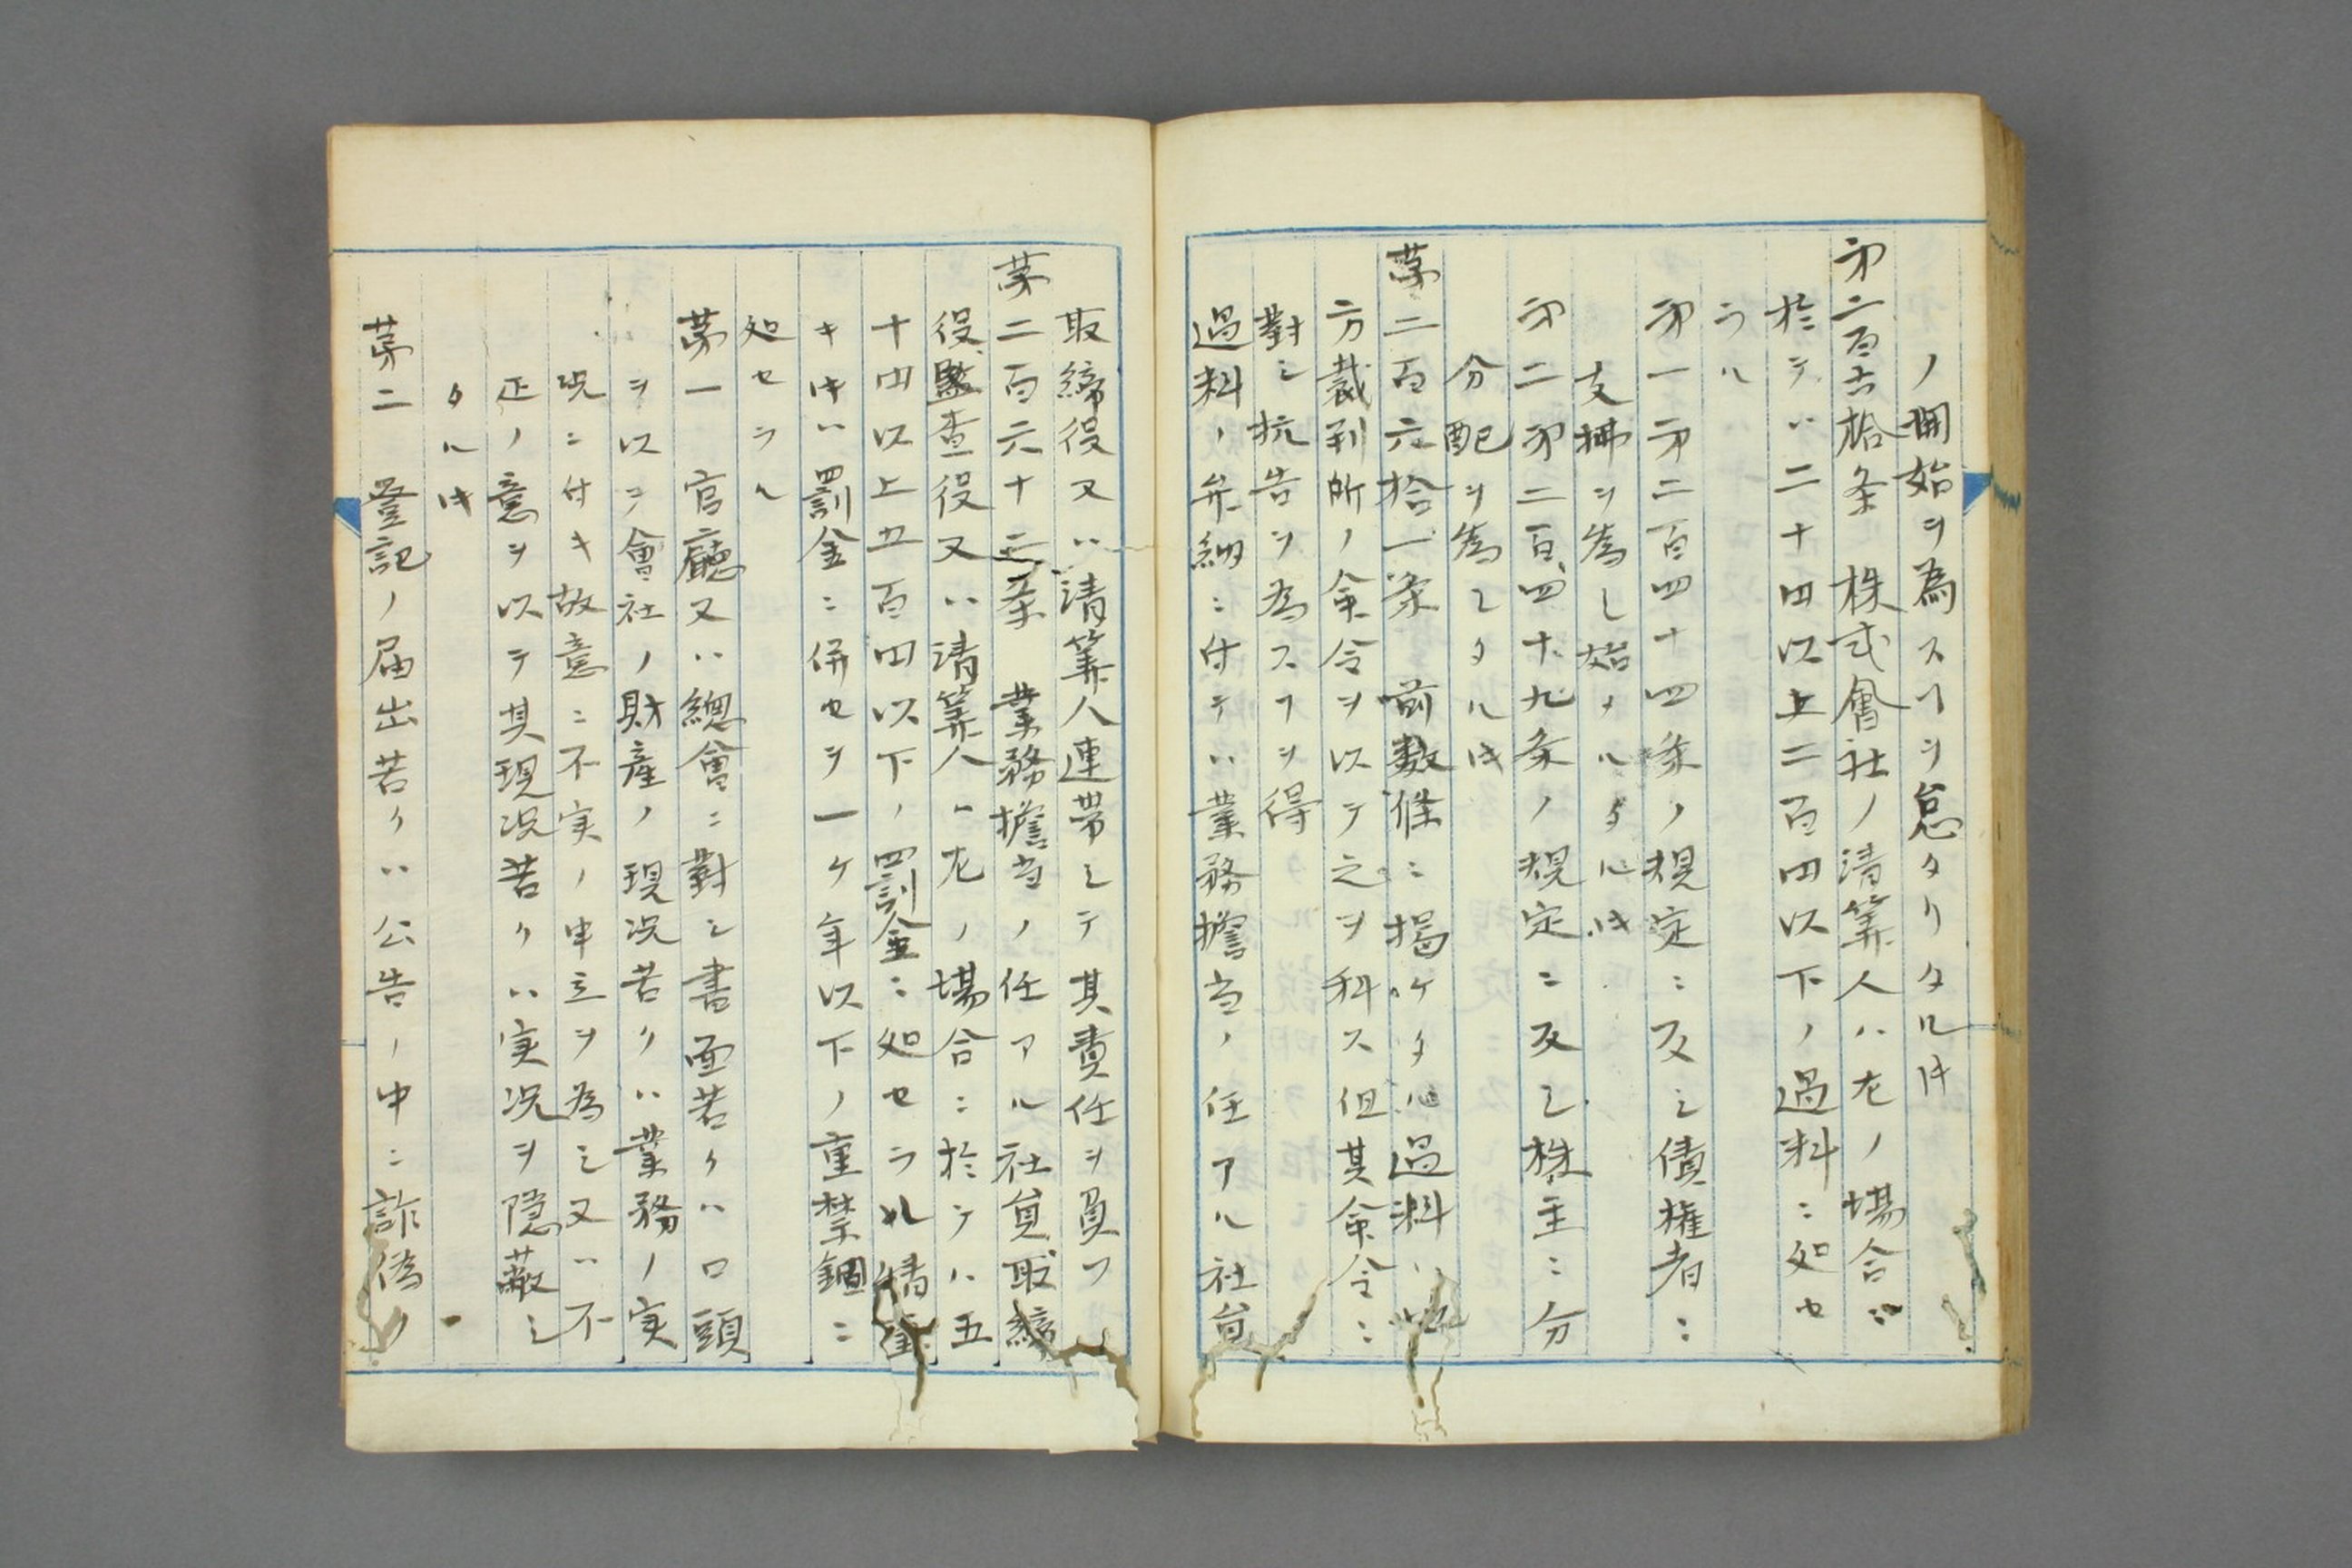 ノ開始ヲ為スヿヲ怠タリタル𪜈
第二百六拾条　株式會社ノ清算人ハ左ノ場合ニ
於テハ二十円以上二百円以下ノ過料ニ処セ
ラル
第一　第二百四十四条ノ規定ニ反シ債権者ニ
支拂ヲ為シ始メルタル𪜈
第二　第二百四十九条ノ規定ニ反シ株主ニ分
分配ヲ為シタル𪜈
第二百六拾一条　前数條ニ掲ケタル過料ハ
方裁判所ノ命令ヲ以テ之ヲ科ス但其命令ニ
對シ抗告ヲ為スヿヲ得
過料ノ弁納ニ付テハ業務擔当ノ任アル社員
取締役又ハ清算人連帯シテ其責任ヲ負フ
第二百六十二条　業務擔当ノ任アル社員取締
役監査役又ハ清算人ハ左ノ場合ニ於テハ五
十円以上五百円以下ノ罰金ニ処セラル情重
キ𪜈ハ罰金ニ併セヲ一ケ年以下ノ重禁錮ニ
処セラル
第一　官廳又ハ總會ニ對シ書面若クハ口頭
ヲ以テ會社ノ財産ノ現况若クハ業務ノ実
况ニ付キ故意ニ不実ノ申立ヲ為シ又ハ不
正ノ意ヲ以テ其現况若クハ実况ヲ隠蔽シ
タル𪜈
第二　登記ノ届出若クハ公告ノ中ニ詐偽ノ